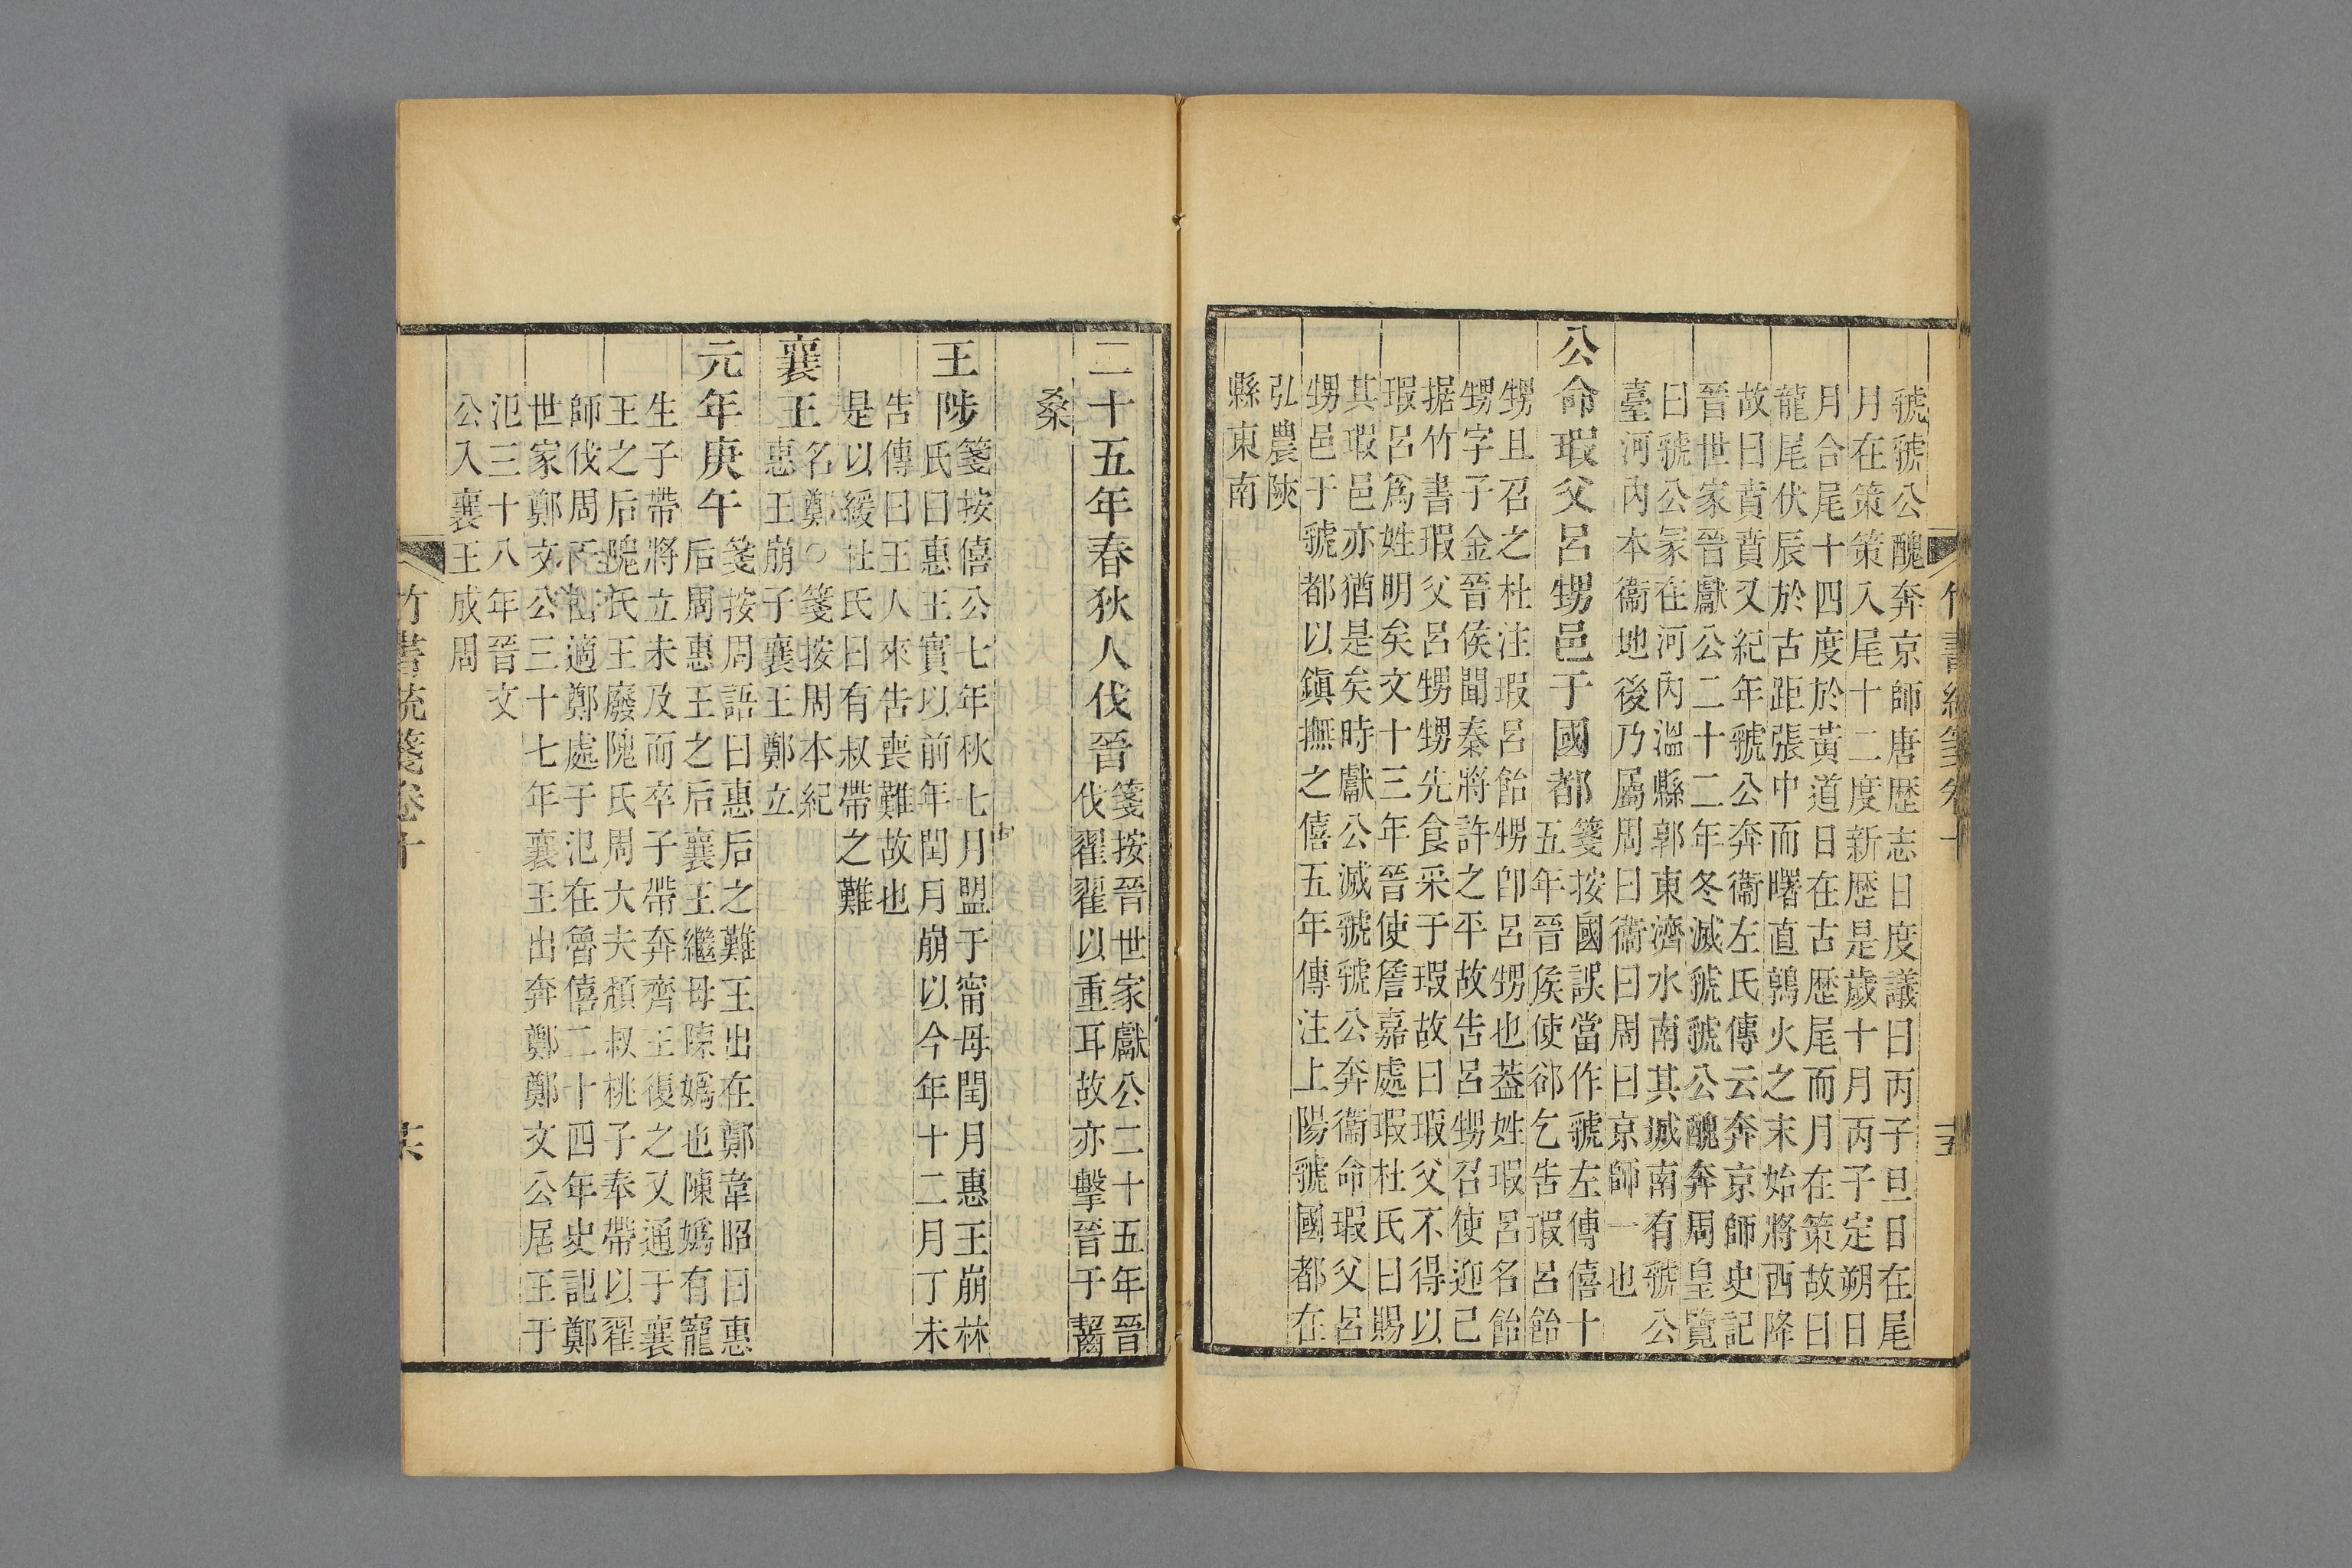 虢虢公醜奔京師唐歷志日度議曰丙子旦日在尾
月在策策入尾十二度新歷是歲十月丙子定朔日
月合尾十四度於黃道日在古歷尾而月在策故曰
龍尾伏辰於古距張中而曙直鶉火之末始將西降
故曰賁賁又紀年虢公奔衞左氏傳云奔京師史記
晉世家晉獻公二十二年冬滅虢虢公醜奔周皇覽
曰虢公冢在河內溫縣郭東濟水南其城南有虢公
臺河內本衞地後乃屬周曰衞曰周曰京師一也
公命瑕父呂甥邑于國都箋按國誤當作虢左傳僖十
五年晉侯使郤乞告瑕呂飴
甥且召之杜注瑕呂飴甥卽呂甥也蓋姓瑕呂名飴
甥字子金晉侯聞秦將許之平故告呂甥召使迎己
据竹書瑕父呂甥甥先食采于瑕故曰瑕父不得以
瑕呂爲姓明矣文十三年晉使詹嘉處瑕杜氏曰賜
其瑕邑亦猶是矣時獻公滅虢虢公奔衞命瑕父呂
甥邑于虢都以鎭撫之僖五年傳注上陽虢國都在
弘農陝
縣東南
竹書統箋卷十
十五
二十五年春狄人伐晉箋按晉世家獻公二十五年晉
伐翟翟以重耳故亦擊晉于齧
桑
王陟箋按僖公七年秋七月盟于甯母閏月惠王崩林
氏曰惠王實以前年閏月崩以今年十二月丁未
告傳曰王人來告喪難故也
是以緩杜氏曰有叔帶之難
襄王名鄭○箋按周本紀
惠王崩子襄王鄭立
元年庚午箋按周語曰惠后之難王出在鄭韋昭曰惠
后周惠王之后襄王繼母陳嬀也陳嬀有寵
生子帶將立未及而卒子帶奔齊王復之又通于襄
王之后隗氏王廢隗氏周大夫頹叔桃子奉帶以翟
師伐周王出適鄭處于氾在魯僖二十四年史記鄭
世家鄭文公三十七年襄王出奔鄭鄭文公居王于
氾三十八年晉文
公入襄王成周
竹書統箋卷十